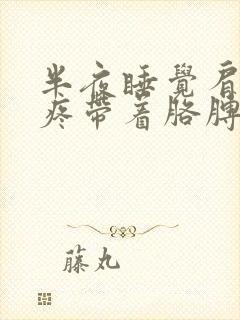 半夜睡覺肩
疼帶着胳脾
藤丸